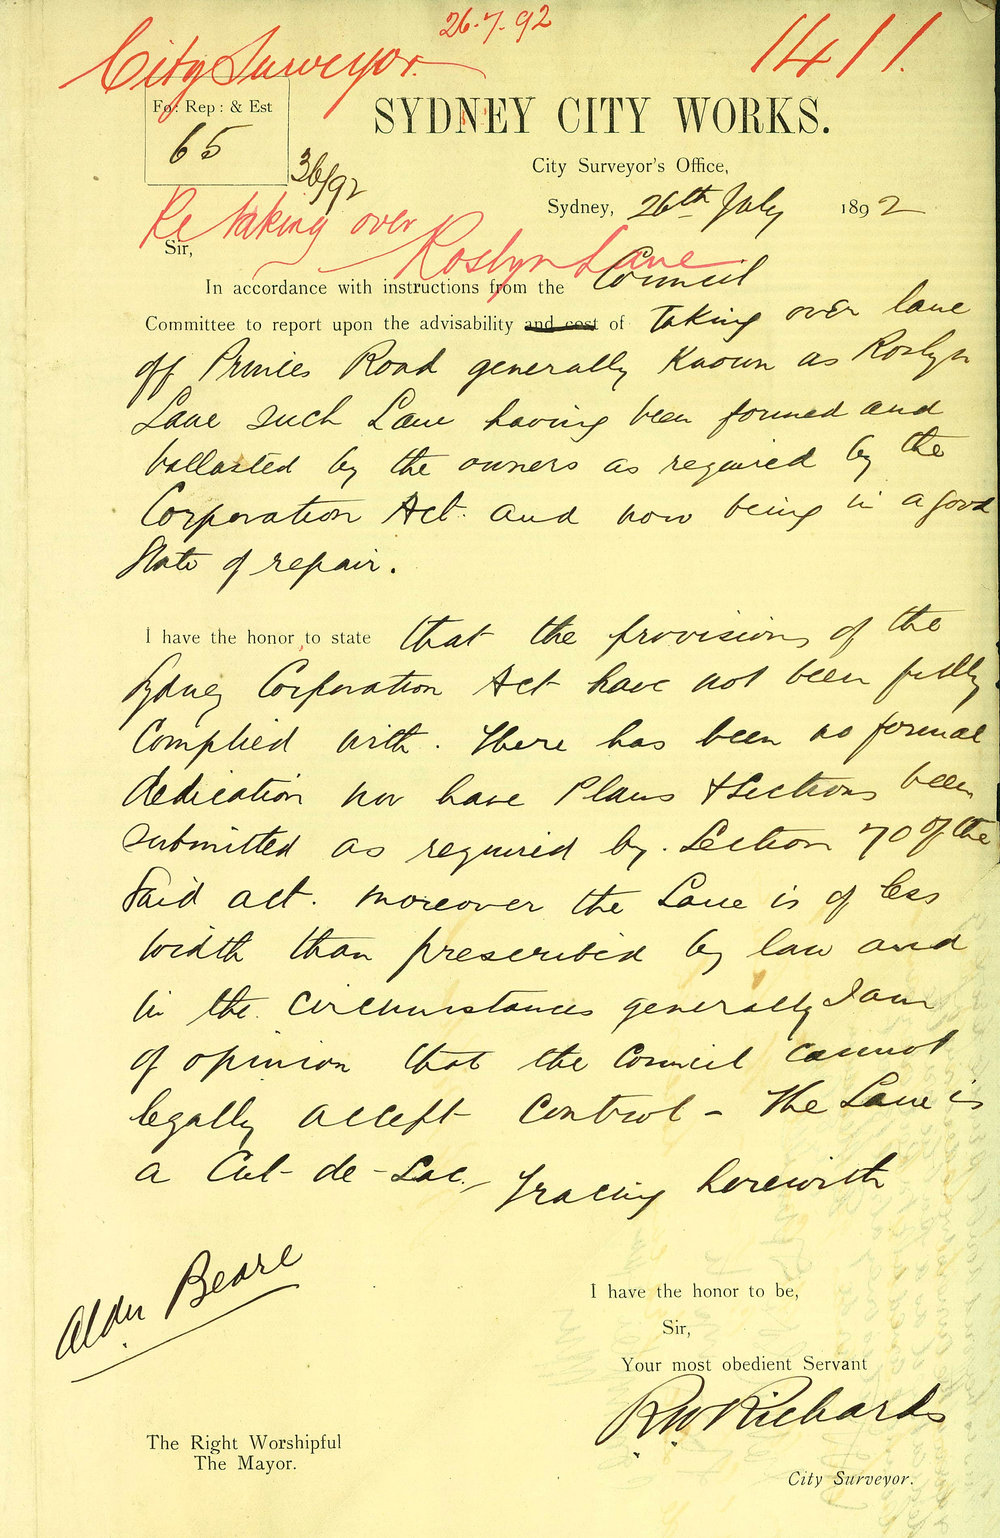 26.7.92
City Surveyor.
1411.
Fo: Rep: & Est
65
36/92
SYDNEY CITY WORKS.
City Surveyor's Office,
Sydney, 26th July 1892
Re taking over
Roslyn Lane
Sir,
In accordance with instructions from the Council
Committee to report upon the advisability and cost of taking over lane
off Princes Road generally known as Roslyn
Lane such Lane having been formed and
ballasted by the owners as required by the
Corporation Act. and now being in a good
State of repair.
I have the honor to state that the provisions of the
Sydney Corporation Act have not been fully
Complied with. There has been no formal
dedication nor have Plans & Sections been
submitted as required by. Section 70 of the
Said act. Moreover the Lane is of less
width than prescribed by law and
in the circumstances generally I am
of opinion that the Council cannot
legally accept control - The Lane is
a Cul-de-Sac. - Tracing herewith
Aldn Beare
I have the honor to be,
Sir,
Your most obedient Servant
R W Richards
City Surveyor.
The Right Worshipful
The Mayor.